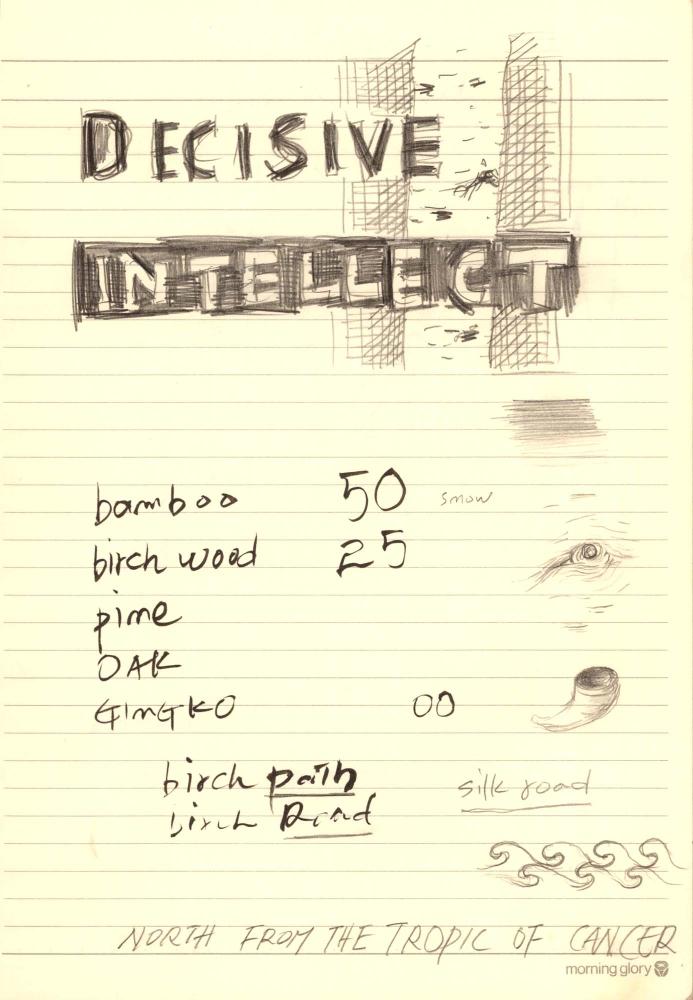 DECISIVE
INTELLECT
bamboo 50 snow
birch wood 25
pine
OAK
GINGKO 00
birch path
silk road
birch Road
NORTH FROM THE TROPIC OF CANCER
morning glory